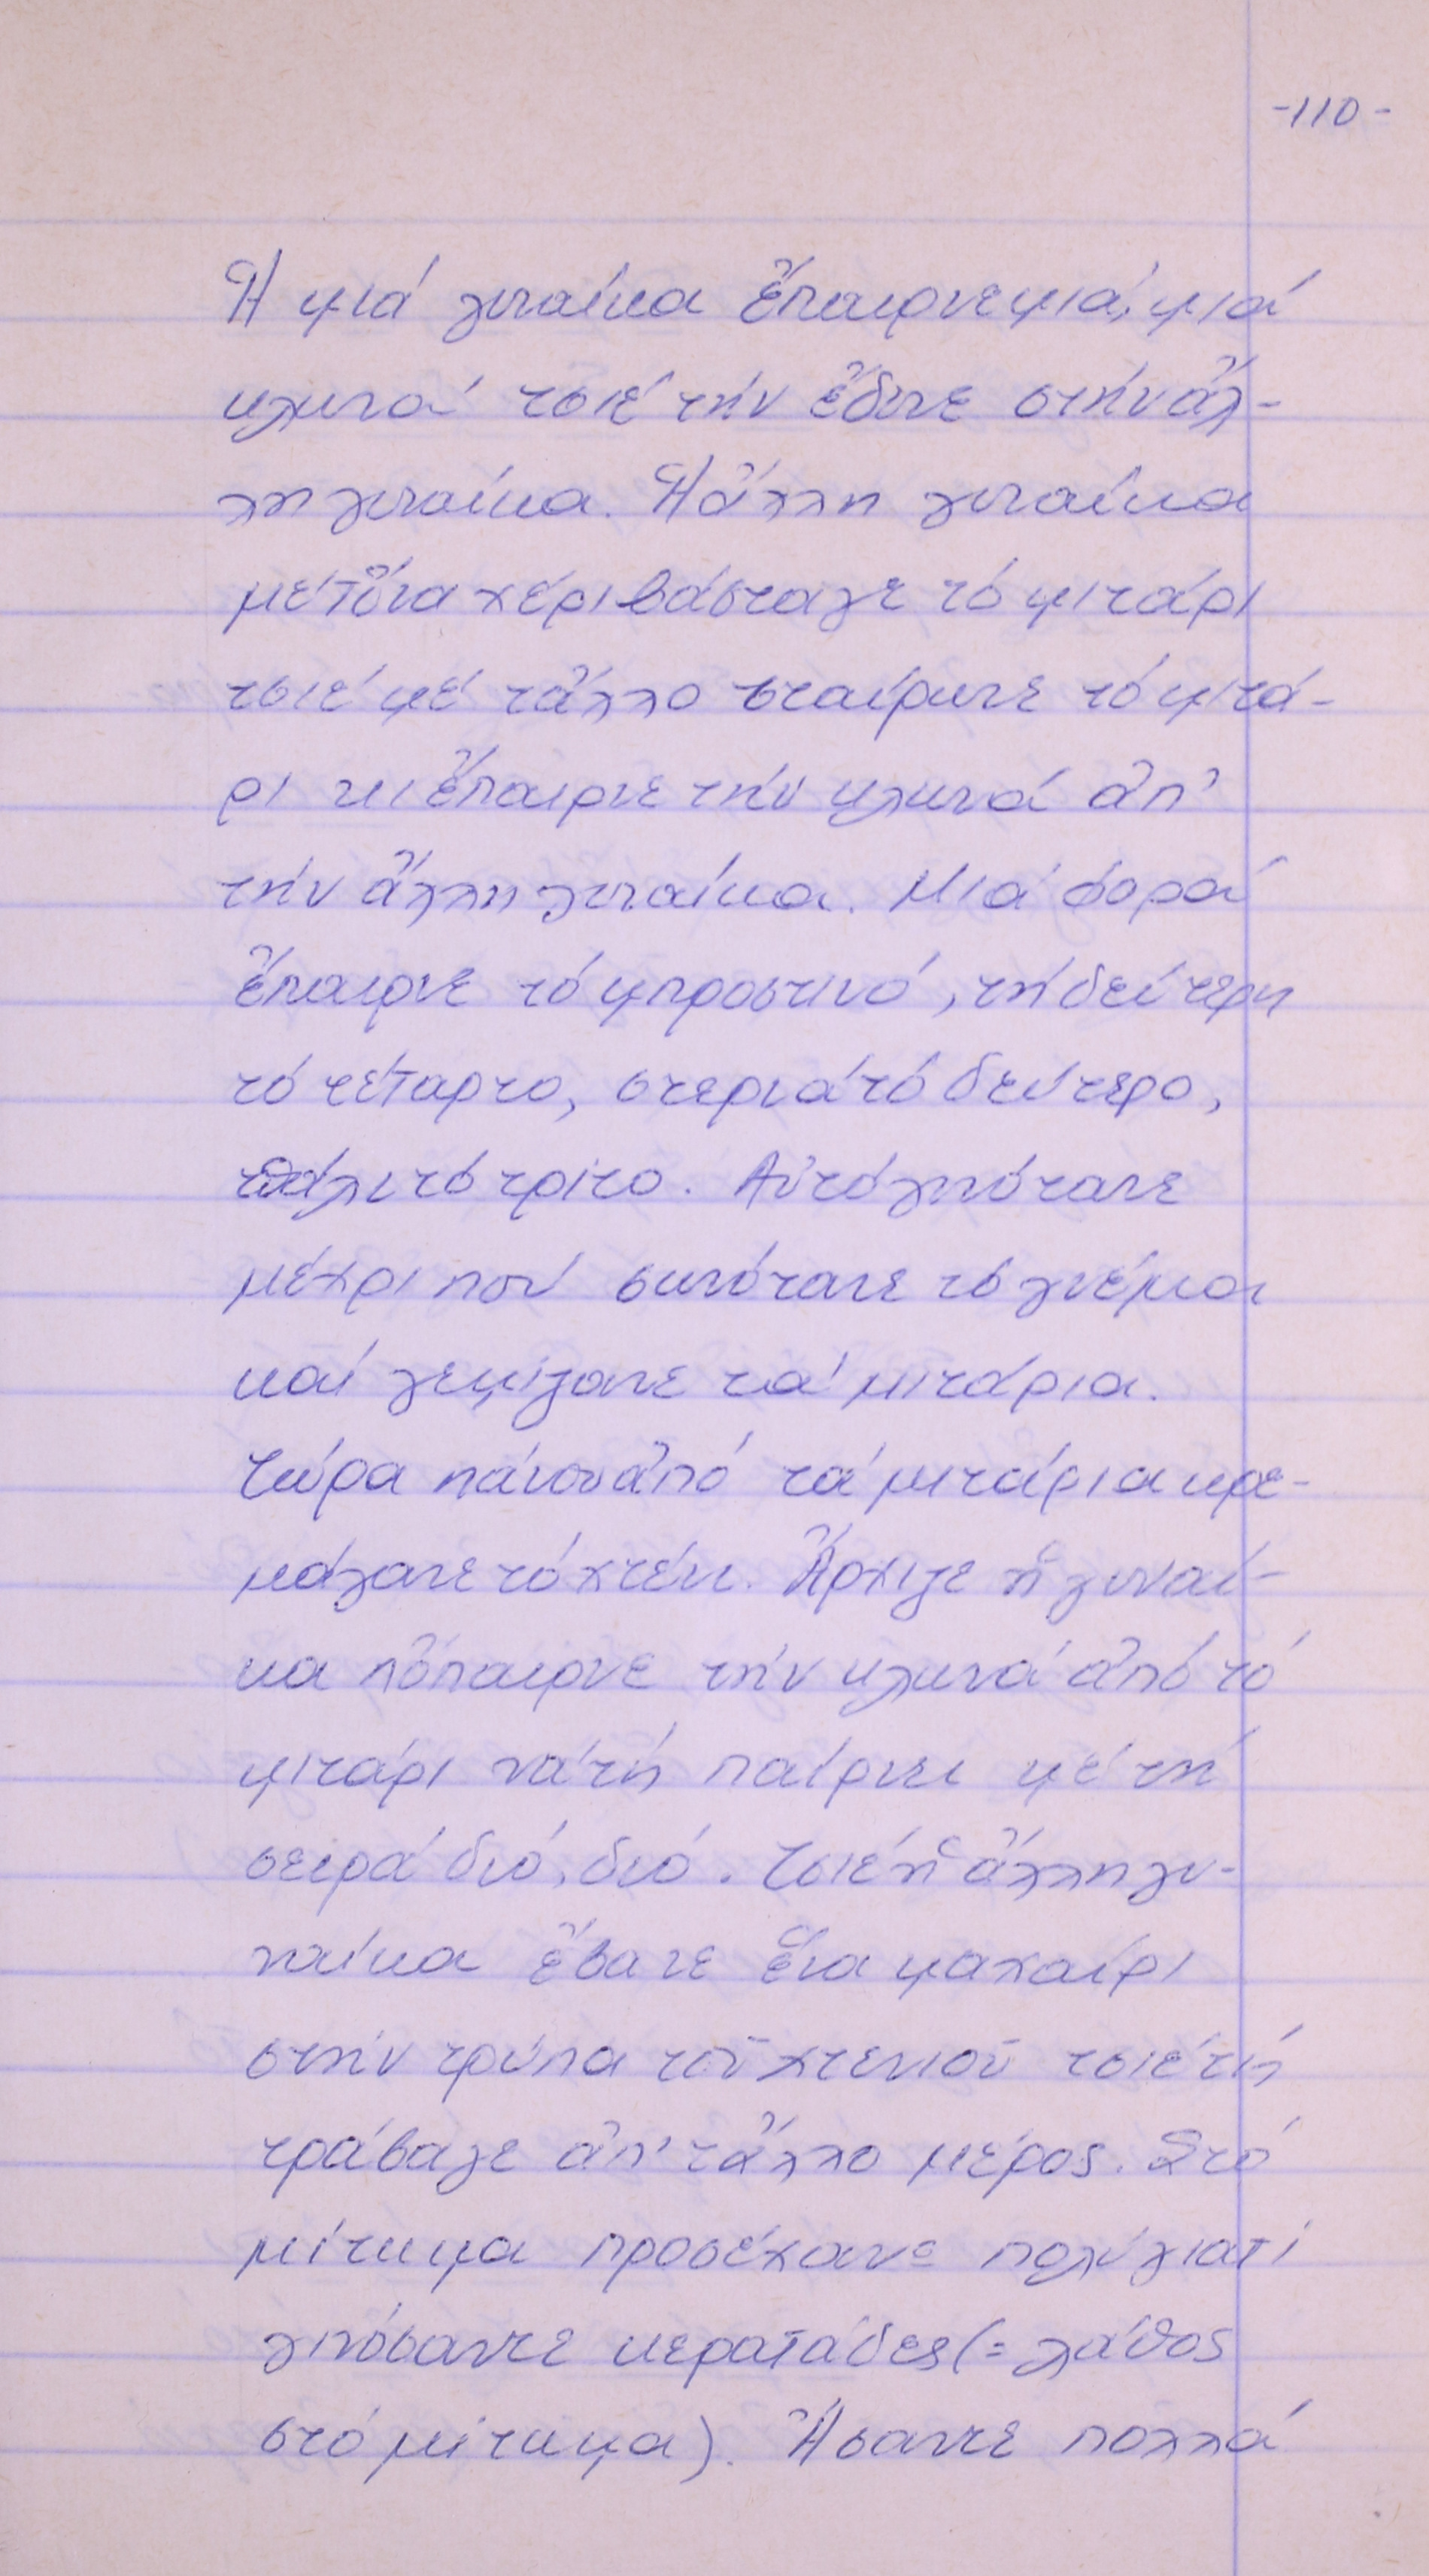 -110-
Ἡ μιά γυναίκα ἔπαιρνε μιά, μιά
κλωνά τσιέ τήν ἔδινε στήν ἄλ-
λη γυναίκα. Ἡ ἄλλη γυναίκα
μέ τὄνα χέρι βάσταγε τό μιτάρι
τσιέ μέ τἄλλο σταίρωνε τό μιτά-
ρι κι ἔπαιρνε τήν κλωνά ἀπ'
τήν ἄλλη γυναίκα. Μιά φορά
ἔπαιρνε τό μπροστινό, τή δεύτερη
τό τέταρτο, στερνά τό δεύτερο,
πάλι τό τρίτο. Αὐτό γινότανε
μέχρι πού σωνότανε τό γνέμα
καί γεμίζανε τά μιτάρια.
Τώρα πάνου ἀπό τά μιτάρια κρε-
μάγανε τό χτένι. Ἄρχιζε ἡ γυναί-
κα πὄπαιρνε τήν κλωνά ἀπό τό
μιτάρι νά τή παίρνει μέ τή
σειρά διό, διό. Τσιέ ἡ ἄλλη γυ-
ναίκα ἔβανε ἕνα μαχαίρι
στήν τρύπα τοῦ χτενιοῦ τσιέ τή
τράβαγε ἀπ' τἄλλο μέρος. Στό
μίτωμα προσέχανε πολύ γιατί
γινόσαντε κερατάδες (= λάθος
στό μίτωμα). Ἤσαντε πολλά